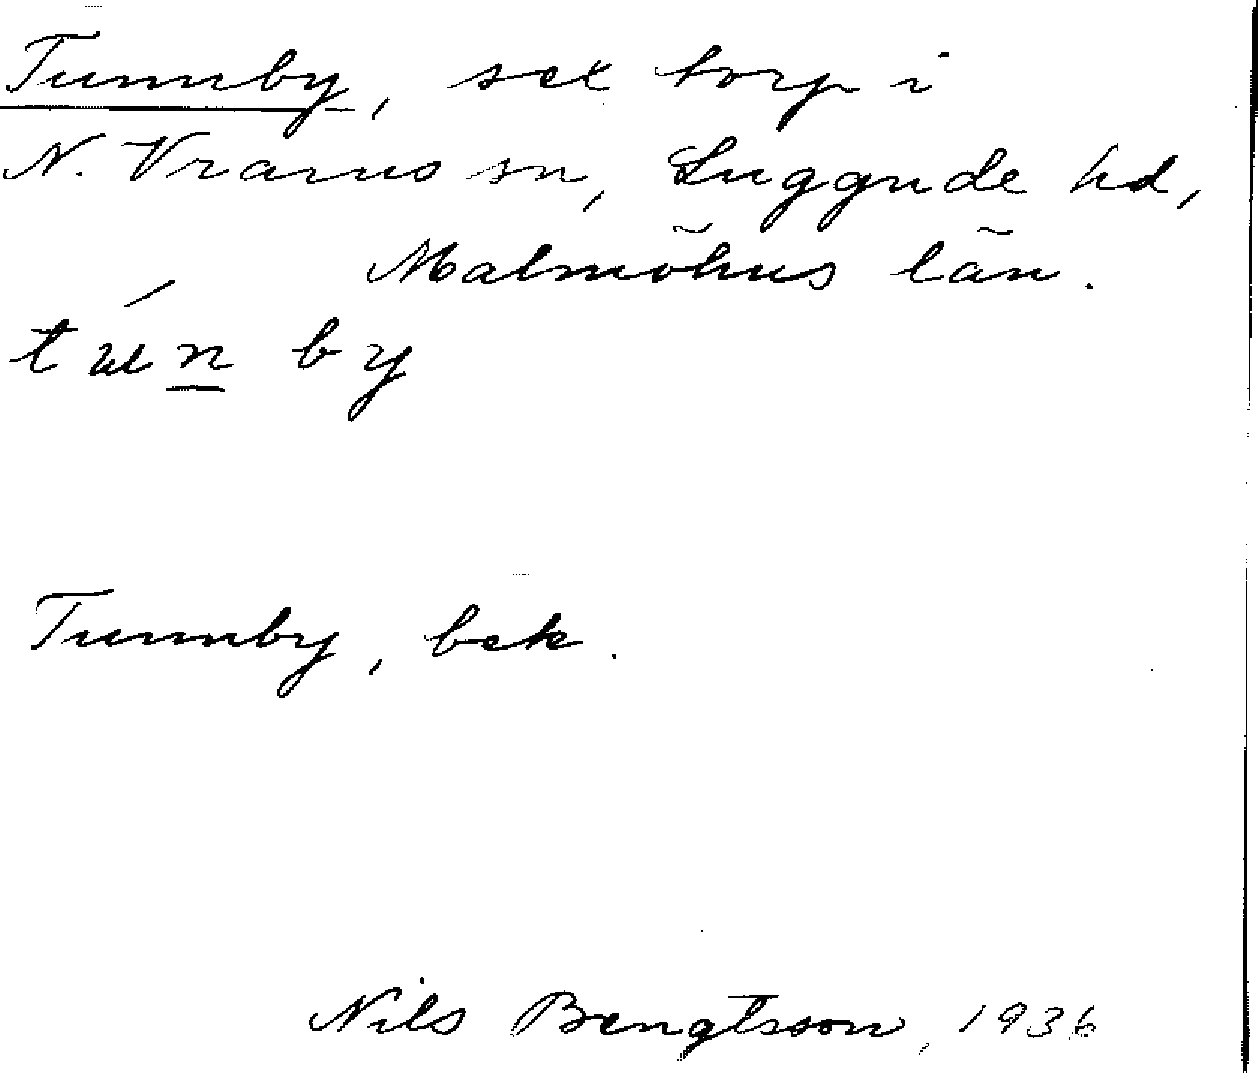 Tunnby, sex torp i
N. Vrams sn, Luggude hd,
Malmöhus län.
tu̇n by
Tunnby, bek.
Nils Bengtsson, 1936